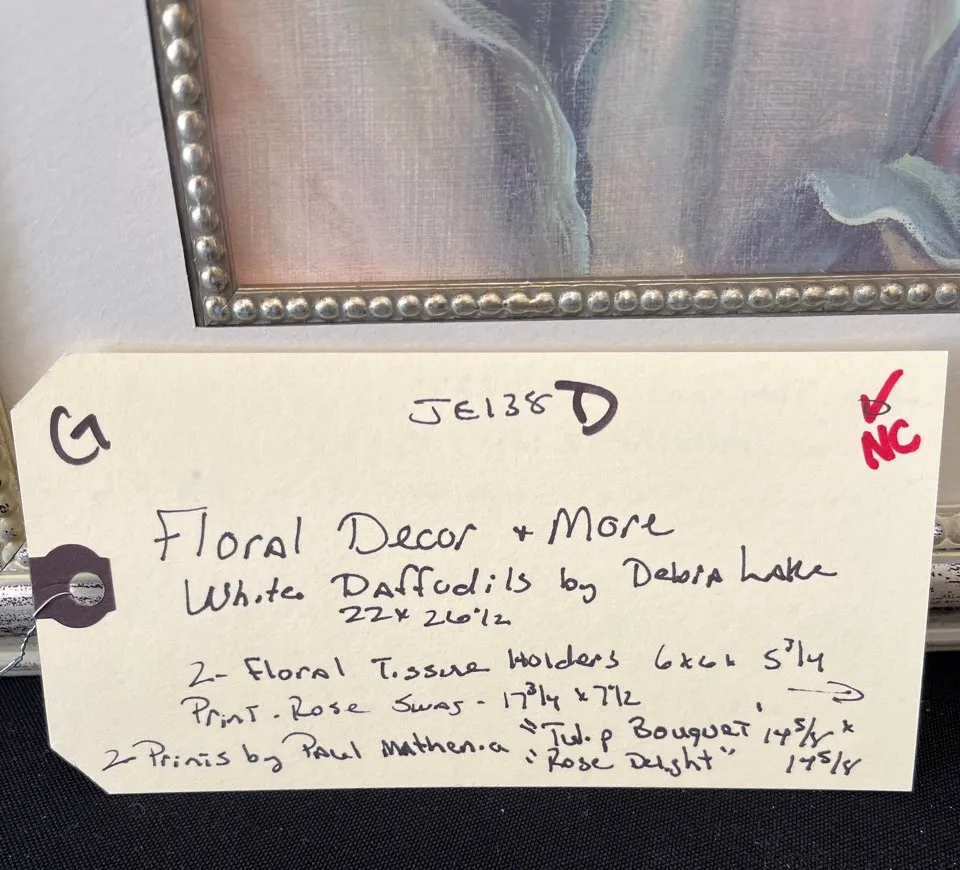 G
JE138 D
NC
Floral Decor + More
White Daffodils by Debra Lake
22 x 26 1/2
2- Floral Tissue Holders 6x6x 5 3/4
Print - Rose Swag - 17 3/4 x 7 1/2
2- Prints by Paul Mathenia "Tulip Bouquet" 14 5/8 x
"Rose Delight" 14 5/8